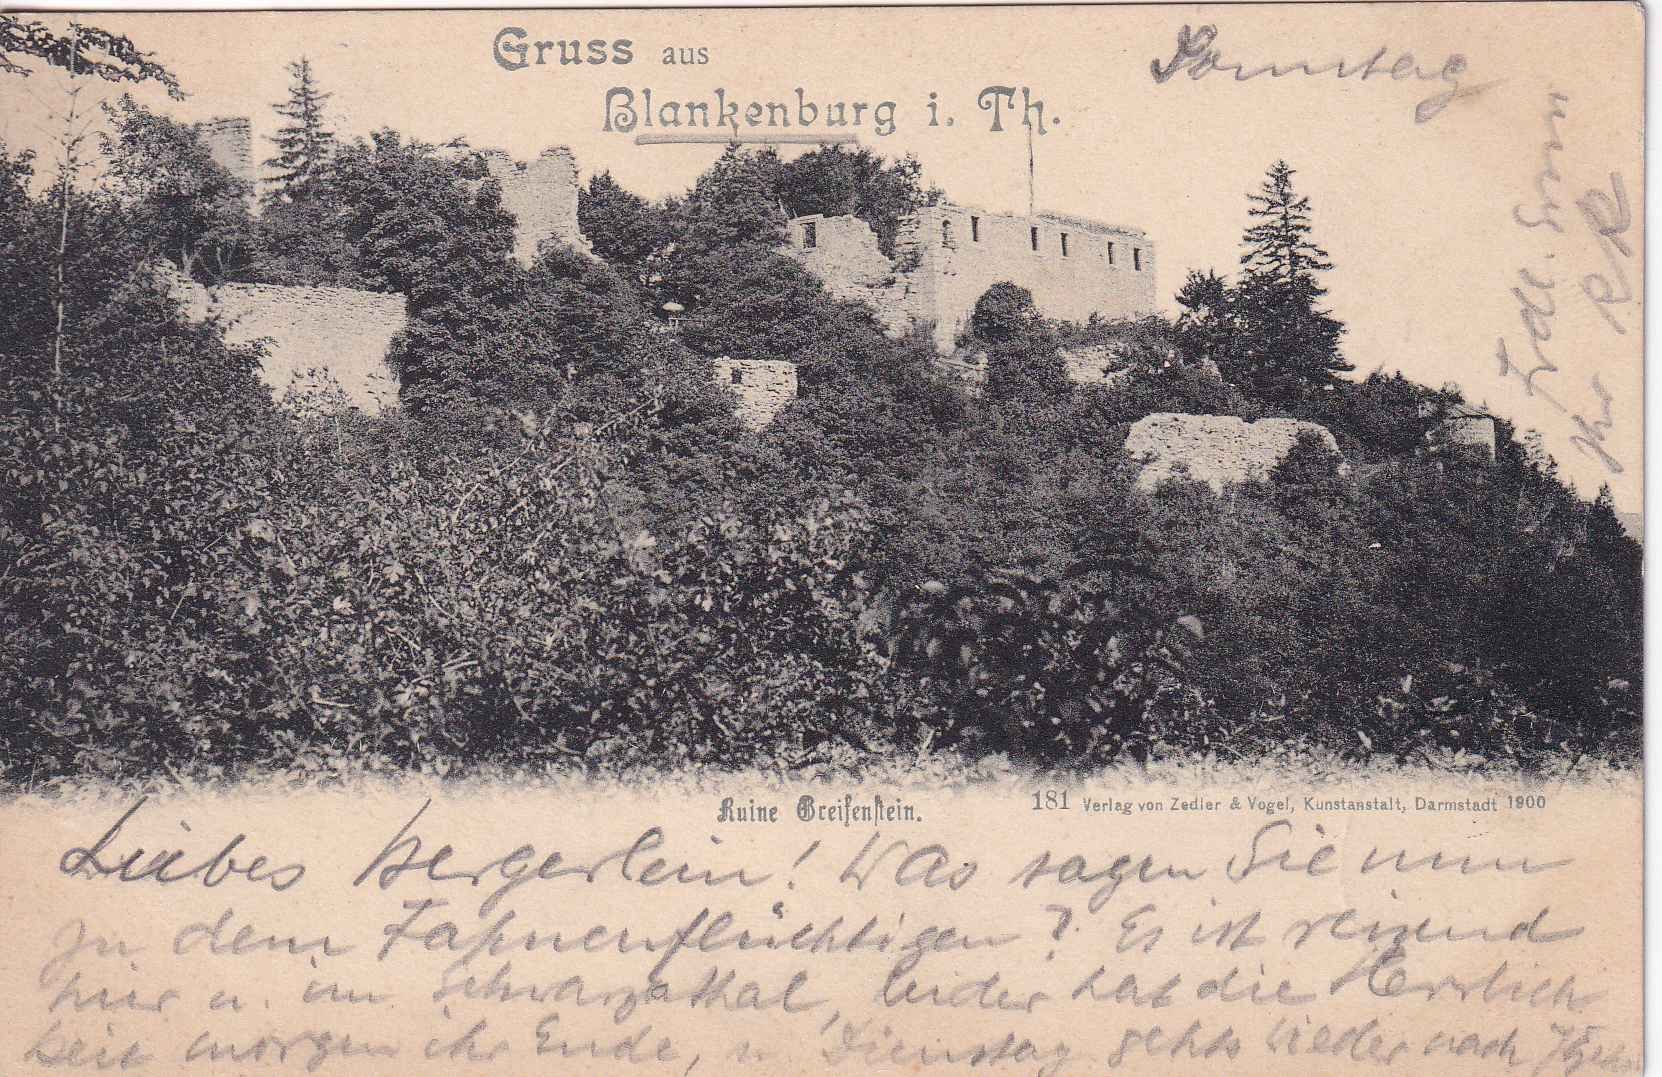 Gruss aus
Blankenburg i. Th.
Sonntag
Ruine Greifenstein.
181 Verlag von Zedler & Vogel, Kunstanstalt, Darmstadt 1900
Liebes Hergerlein! Was sagen Sie nun
zu dem Fahnenflüchtigen? Es ist reizend
hier u. im Schwarzathal, leider hat die Herrlich
keit morgen ihr Ende, u. Dienstag gehts wieder nach
Ihr